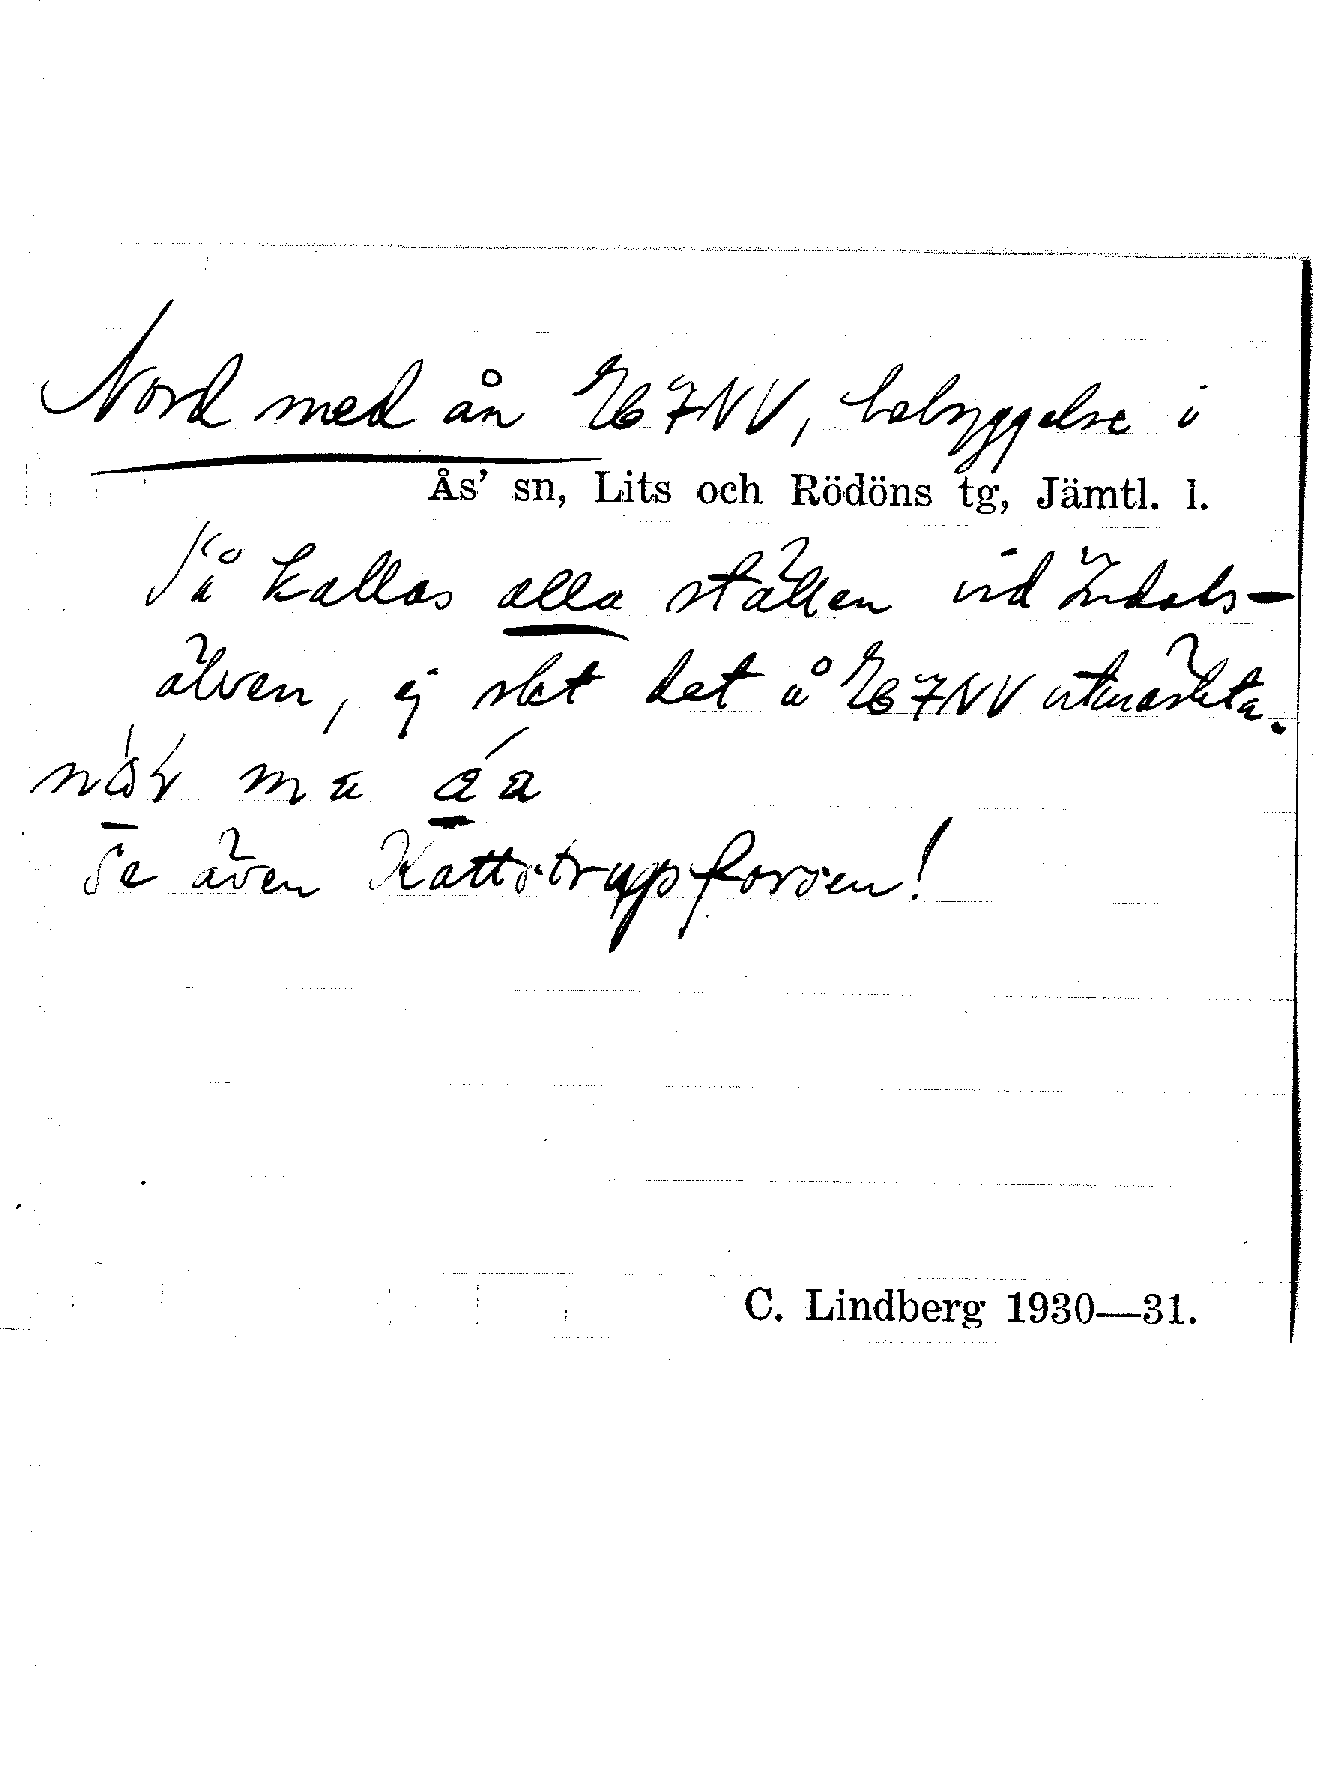 Nord med ån 7NV, bebyggelse i
Ås' sn, Lits och Rödöns tg, Jämtl. l.
Så kallas alla ställen vid Indals-
älven, ej blot det å 7NV utmärkta.
ma áa
Se även Kattstrupforsen!
C. Lindberg 1930—31.